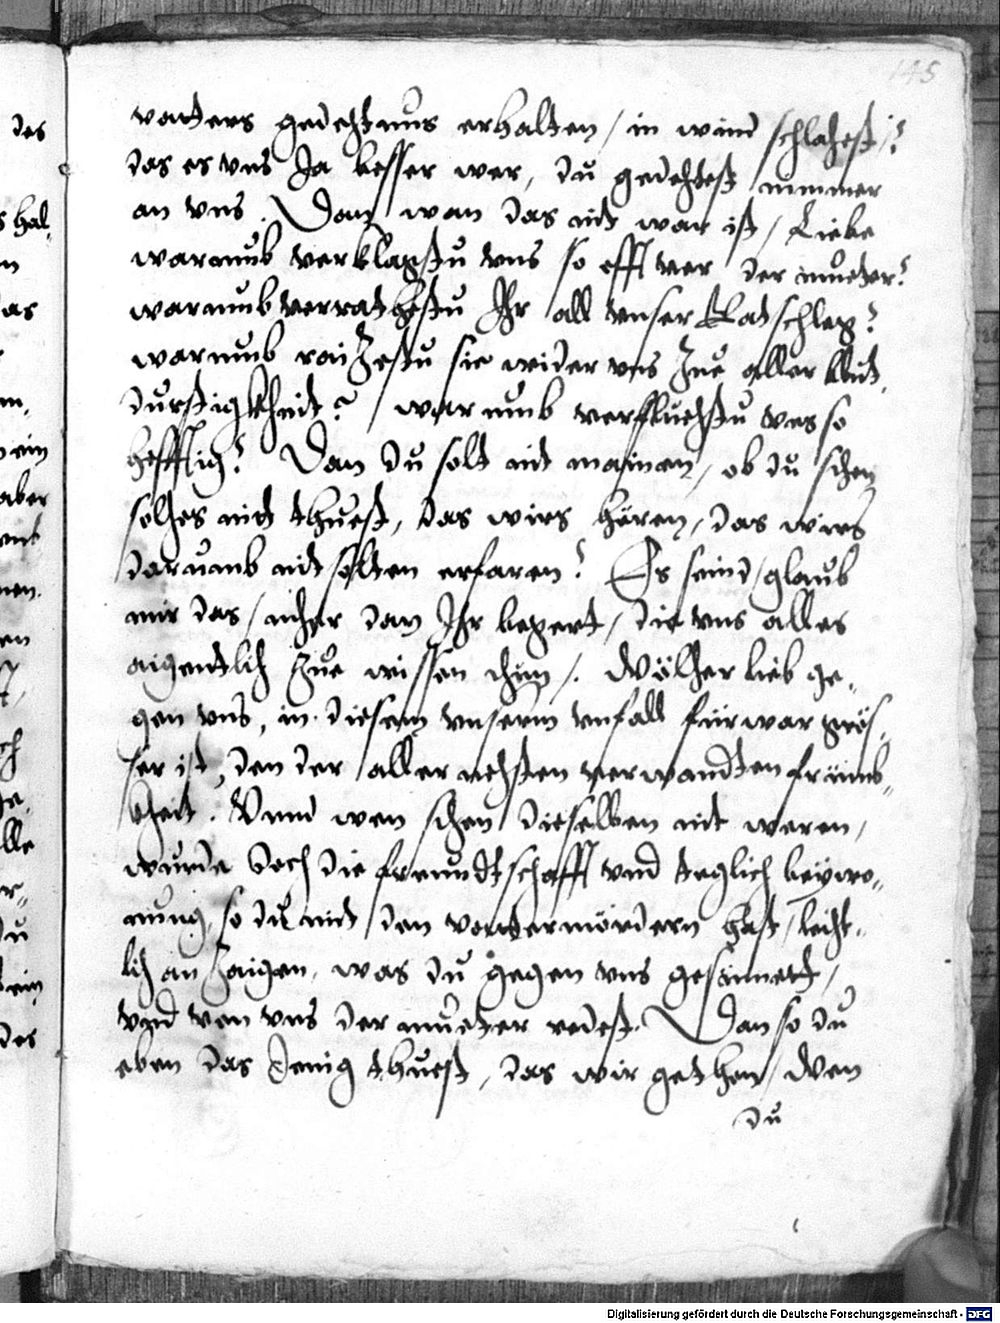 145
vatters gedechtnus erhalten / in wind schlahest /?
das es vns Ja besser wer, du gedechtest nimmer
an vns. Dan wan das nit war ist / Liebe
warumb verklagstu vns so offt vor der mueter?
warumb verrathestu Ihr all vnser Ratschleg?
warumb raitzestu sie wider vns zue aller blut,
durstigkheit? warumb verfluchstu vns so
hefftig? Dan du solt nit mainen, ob du schon
solches nit thuest, das wirs hören, das wirs
darumb nit solten erfaren? Es seind / glaub
mir das / mher dan Ihr begert / die vns alles
aigentlich zue wissen thun /. Wölcher lieb ge,
gen vns, in diesem vnserm vnfall fürwar grös,
ser ist, den der aller nehsten verwandten fraind,,
theit. Vnnd wen schon dieselben nit weren,
wurde doch die freundtschafft vnd teglich beywo,,
nung, so du mit den vattermördern hast / leicht,,
lich an zaigen, was du gegen vns gesinnett,
vnd von vns der mueter redest. Dan so du
eben das Jenig thuest, das wir gethon / Wen
du
des
s hal,
as
m,
ein
aber
nen.
en
ge,
lle
r,,
du
des
Digitalisierung gefördert durch die Deutsche Forschungsgemeinschaft - DFG